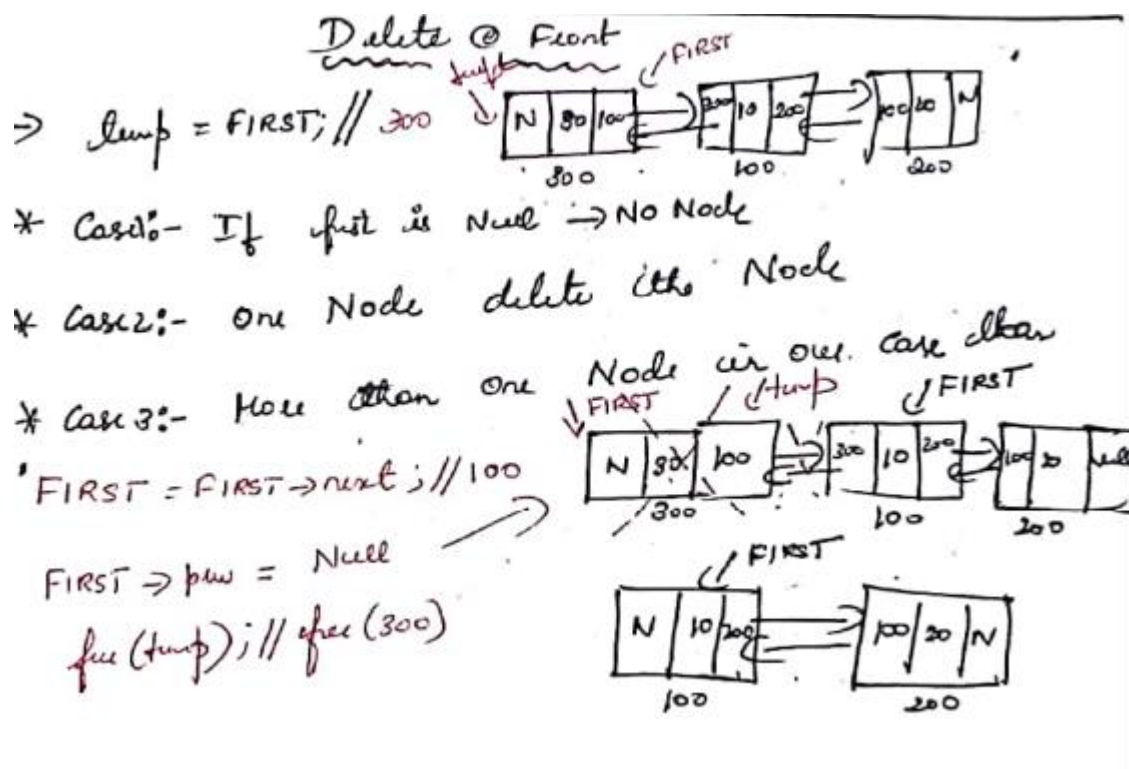 Delete @ Front
temp FIRST
→ temp = FIRST; // 300
N 30 100 300 10 200 100 20 N
300 100 200
* Case1:- If first is Null → No Node
* Case2:- One Node delete the Node
* Case3:- More than one Node in our case than
FIRST temp FIRST
N 30 100 300 10 200 100 20 Null
300 100 200
FIRST = FIRST → next ; // 100
FIRST → prev = Null
FIRST
free (temp); // free (300)
N 10 200 100 20 N
100 200